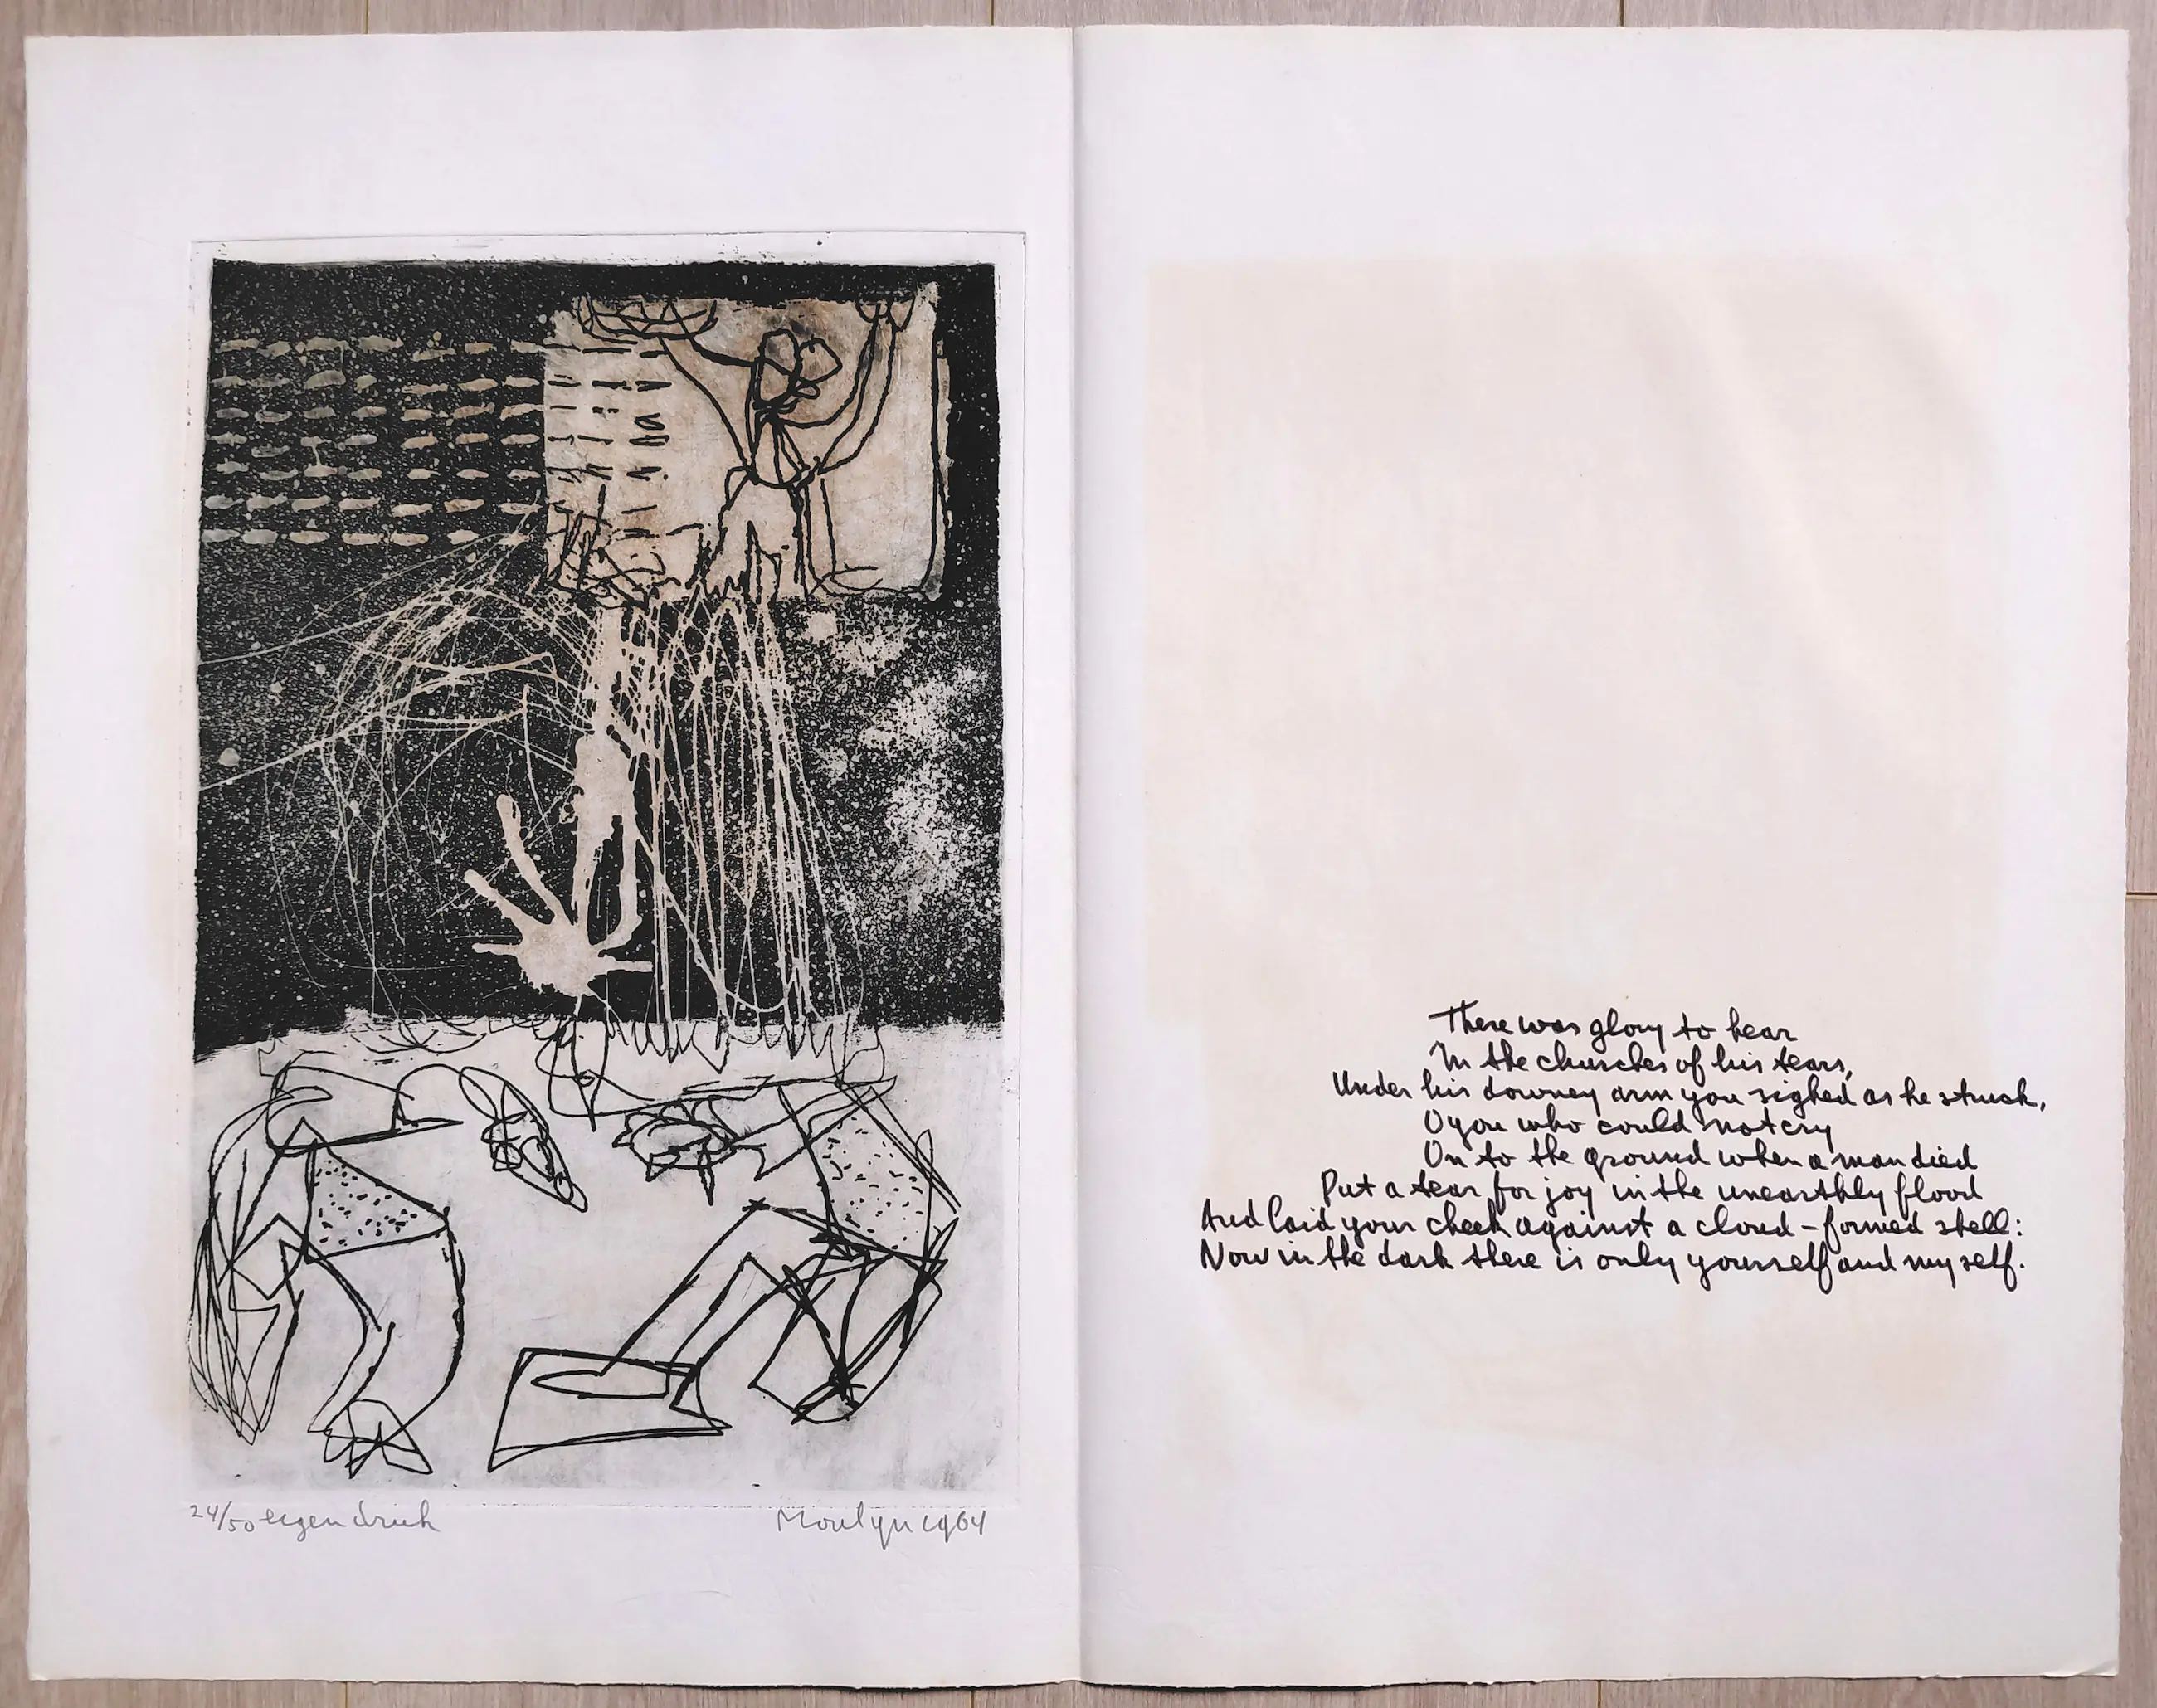 24/50 eigen druk
Moulyn 1964
There was glory to hear
In the churches of his tears,
Under his downey arm you sighed as he struck,
O you who could not cry
On to the ground when a man died
Put a tear for joy in the unearthly flood
And laid your cheek against a cloud-formed shell:
Now in the dark there is only yourself and myself.